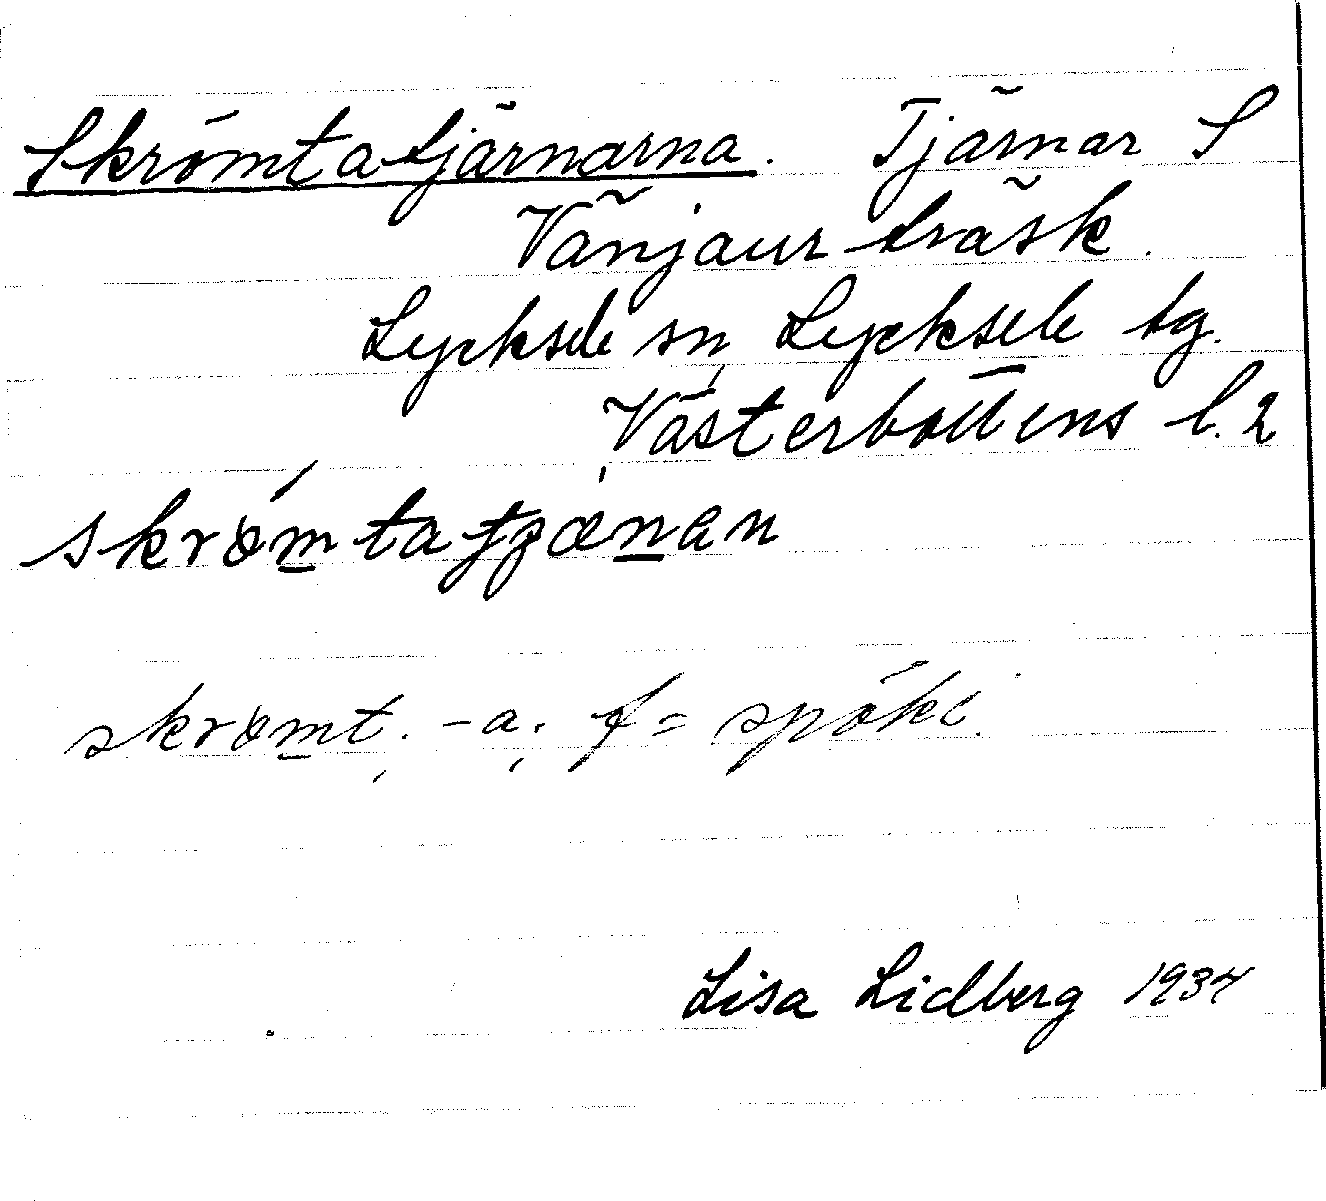 Skrömtatjärnarna. Tjärnar S
Vänjaurträsk.
Lycksele sn, Lycksele tg.
Västerbottens l. 2
skrömtatjzænan
skrömt, -a, f = spöke.
Lisa Lidberg 1934